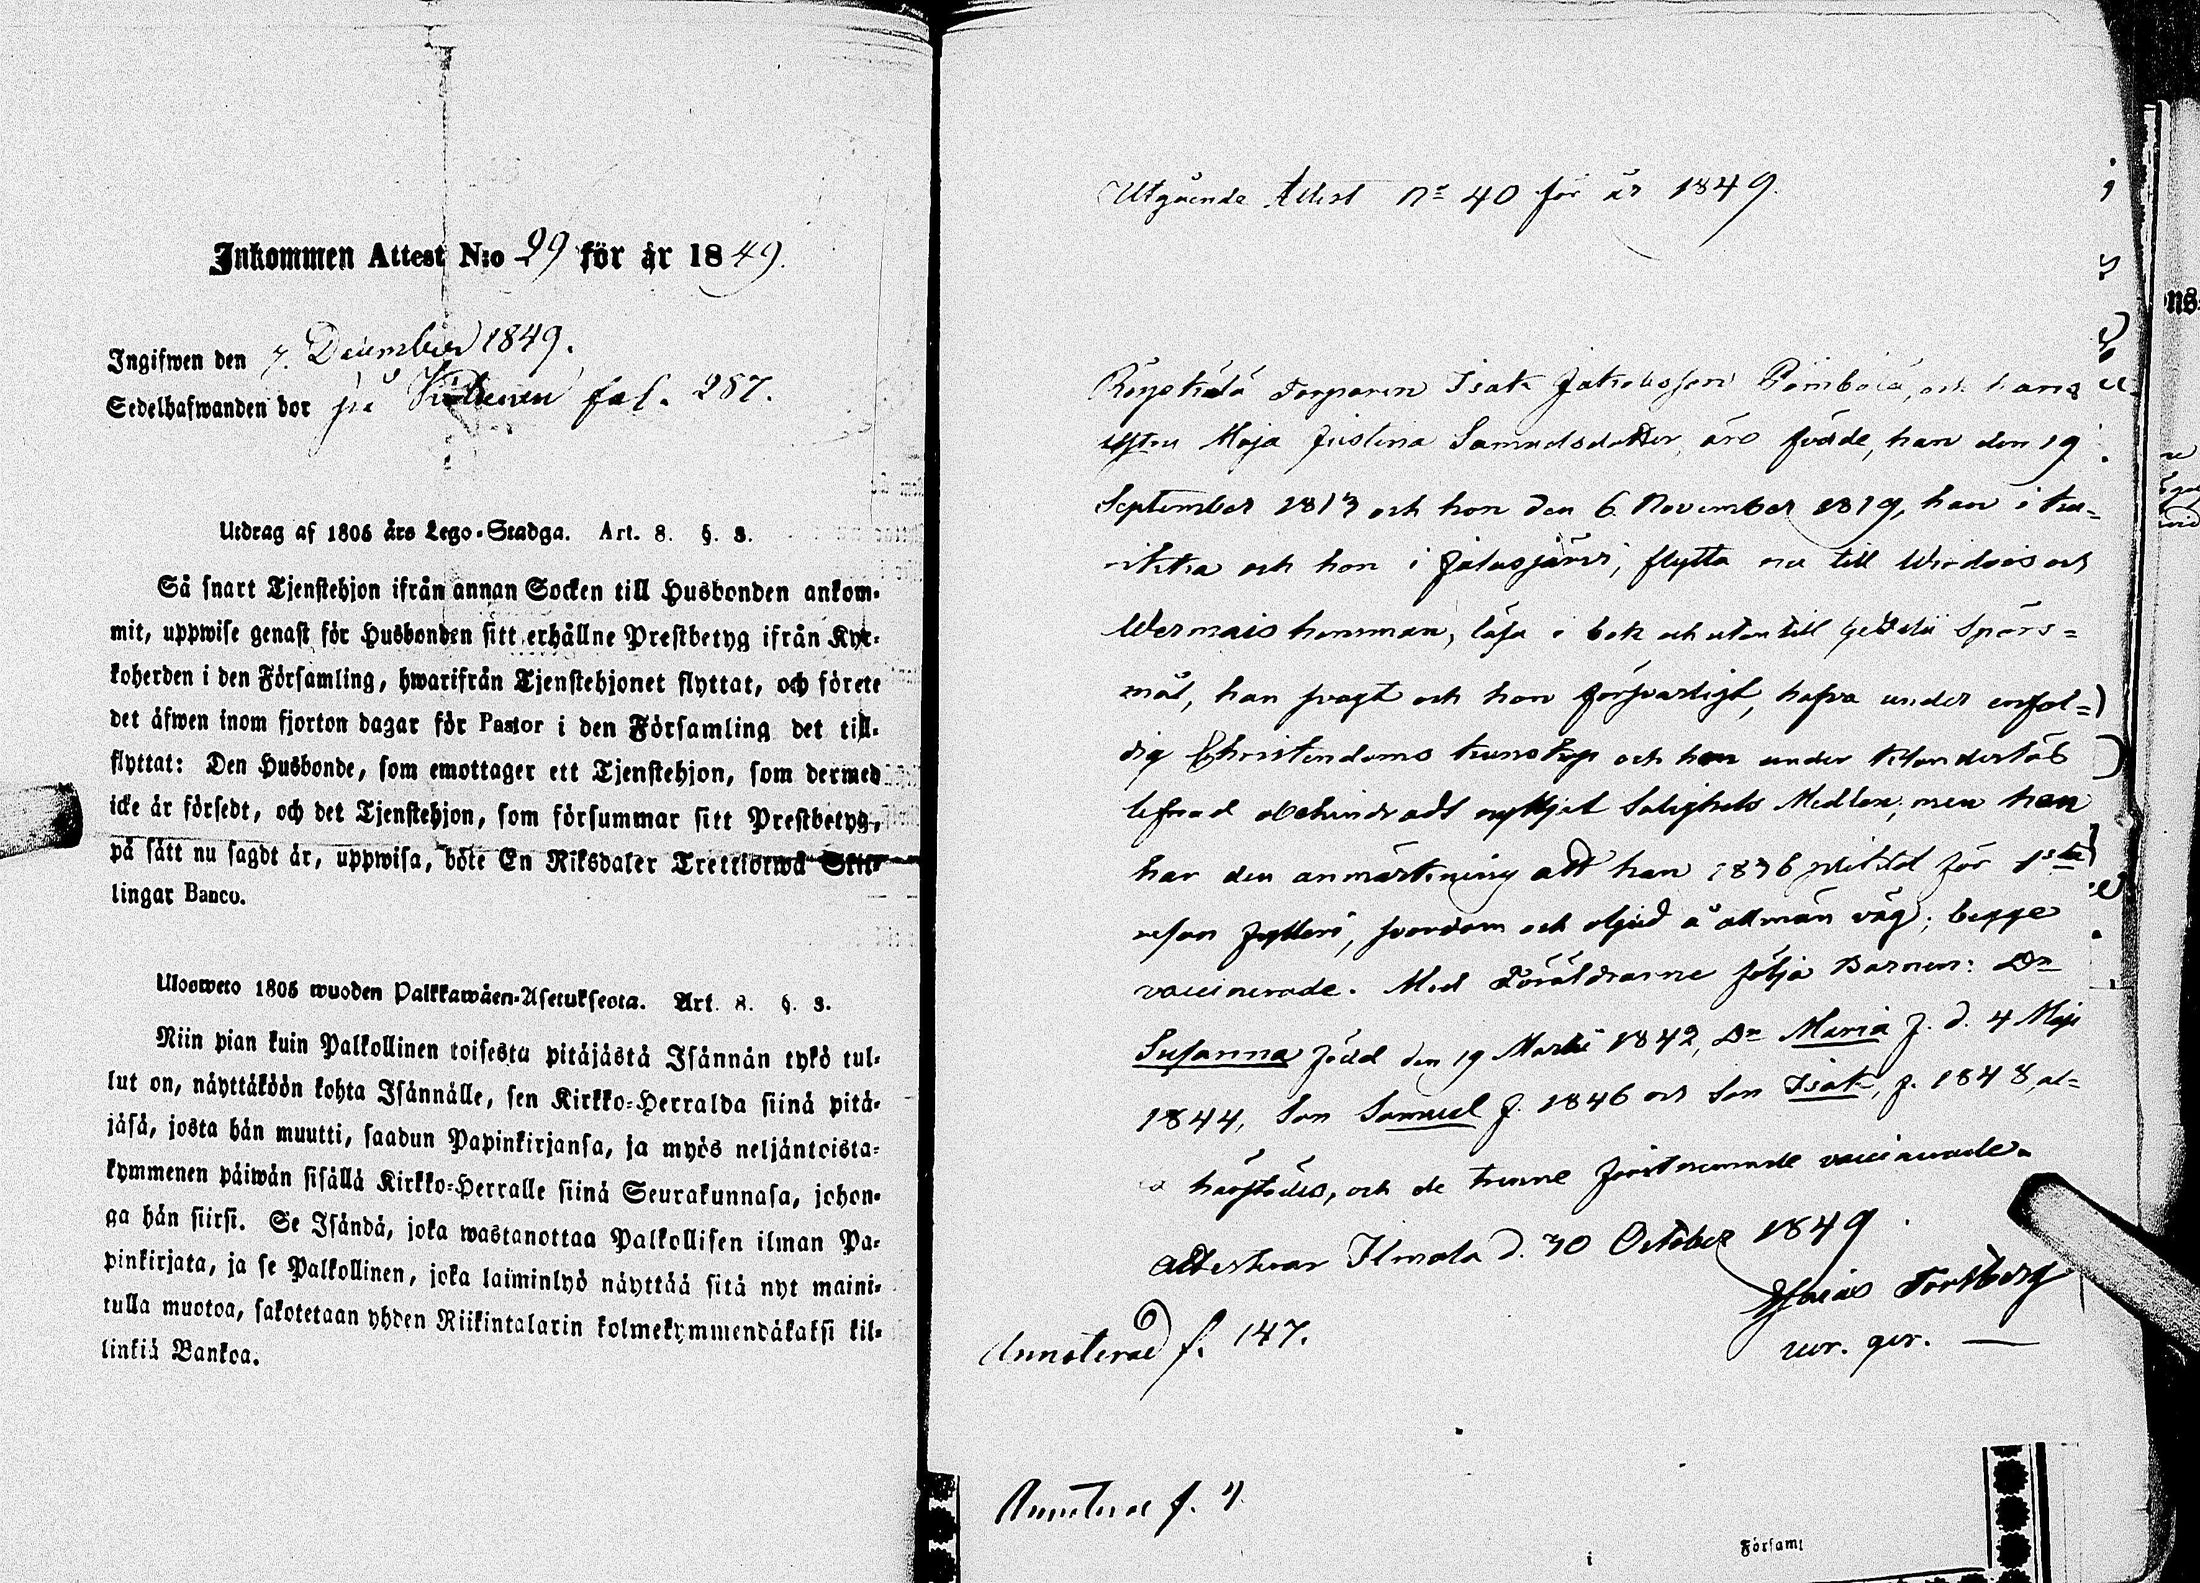 Inkommen Attest N:o 29 för år 1849.
Ingifwen den 7. December 1849.
Sedelhafwanden bor på fol. 287.
Utdrag af 1805 års Lego-Stadga. Art. 8. §. 3.
Så snart Tjenstehjon ifrån annan Socken till Husbonden ankom-
mit, uppwise genast för Husbonden sitt erhållne Prestbetyg ifrån Kyr-
koherden i den Församling, hwarifrån Tjenstehjonet flyttat, och förete
det äfwen inom fjorton dagar för Pastor i den Församling det till-
flyttat: Den Husbonde, som emottager ett Tjenstehjon, som dermed
icke är försedt, och det Tjenstehjon, som försummar sitt Prestbetyg,
på sätt nu sagdt är, uppwisa, böte En Riksdaler Trettiotwå Skil-
lingar Banco.
Ulosweto 1805 wuoden Palkkawäen-Asetuksesta. Art. 8. §. 3.
Niin pian kuin Palkollinen toisesta pitäjästä Isännän tykö tul-
lut on, näyttäköön kohta Isännälle, sen Kirkko-Herralda siinä pitä-
jäsä, josta hän muutti, saadun Papinkirjansa, ja myös neljäntoista-
kymmenen päiwän sisällä Kirkko-Herralle siinä Seurakunnasa, johon-
ga hän siirsi. Se Isändä, joka wastanottaa Palkollisen ilman Pa-
pinkirjata, ja se Palkollinen, joka laiminlyö näyttää sitä nyt maini-
tulla muotoa, sakotetaan yhden Riikintalarin kolmekymmendäkaksi kil-
linkiä Bankoa.
Utgående Attest No 40 för år 1849.
Torparen Isak Jakobsson och hans
hustru Maja Justina Samuelsdotter, äro födde, han den 19
September 1813 och hon den 6 November 1819, han i Kau-
rikka och hon i Jalasjärvi, flytta nu till Wirdois och
Wermais hemman, läsa i bok och utantill jemte Spörs-
mål, han svagt och hon försvarligt, hafva under enfal-
dig Christendoms kunskap och han under klanderlös
lefnad obehindradt nyttjat Salighets Medlen, men han
har den anmärkning att han 1836 pliktat för 1sta
resan fylleri, svordom och oljud å allmän väg; begge
vaccinerade. Med Föräldrarne följa Barnen: Dr
Susanna född den 19 Martii 1842, Dr Maria f. d. 4 Maji
1844, Son Samuel f. 1846 och Son Isak, f. 1848, al-
la härstädes, och de trenne förstnemnde vaccinerade.
Attesterar Ilmola d. 30 October 1849
Esaias Forsberg
ver. ger.
Annoterad f. 147.
Annoterad f. 4
i Församl
ns-